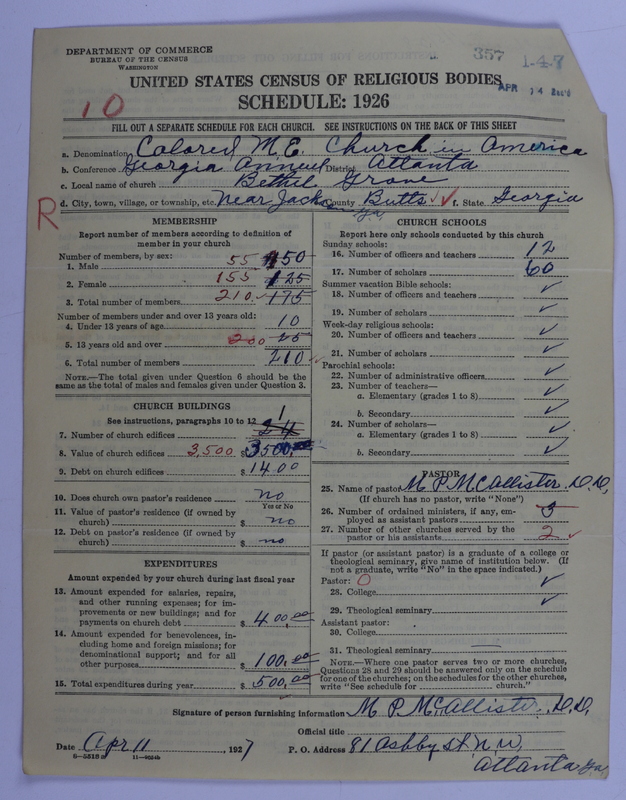 DEPARTMENT OF COMMERCE
BUREAU OF THE CENSUS
WASHINGTON
357 1-47
APR 14
UNITED STATES CENSUS OF RELIGIOUS BODIES
SCHEDULE: 1926
10
FILL OUT A SEPARATE SCHEDULE FOR EACH CHURCH. SEE INSTRUCTIONS ON THE BACK OF THIS SHEET
a. Denomination Colored M.E. Church in America
b. Conference Georgia Annual District Atlanta
c. Local name of church Bethel Grove
d. City, town, village, or township, etc. Near Jackson Ga. County Butts f. State Georgia
R
MEMBERSHIP
Report number of members according to definition of member in your church
Number of members, by sex:
1. Male 55 50
2. Female 155 125
3. Total number of members 210 175
Number of members under and over 13 years old:
4. Under 13 years of age 10
5. 13 years old and over 200
6. Total number of members 210
NOTE.—The total given under Question 6 should be the
same as the total of males and females given under Question 3.
CHURCH BUILDINGS
See instructions, paragraphs 10 to 12
7. Number of church edifices 1 24
8. Value of church edifices 3,500 $3500
9. Debt on church edifices $1400
10. Does church own pastor's residence no
Yes or No
11. Value of pastor's residence (if owned by
church) $ no
12. Debt on pastor's residence (if owned by
church) $ no
EXPENDITURES
Amount expended by your church during last fiscal year
13. Amount expended for salaries, repairs,
and other running expenses; for im-
provements or new buildings; and for
payments on church debt $ 400.00
14. Amount expended for benevolences, in-
cluding home and foreign missions; for
denominational support; and for all
other purposes $ 100.00
15. Total expenditures during year $ 500.00
CHURCH SCHOOLS
Report here only schools conducted by this church
Sunday schools:
16. Number of officers and teachers 12
17. Number of scholars 60
Summer vacation Bible schools:
18. Number of officers and teachers ✓
19. Number of scholars ✓
Week-day religious schools:
20. Number of officers and teachers ✓
21. Number of scholars ✓
Parochial schools:
22. Number of administrative officers ✓
23. Number of teachers—
a. Elementary (grades 1 to 8) ✓
b. Secondary ✓
24. Number of scholars—
a. Elementary (grades 1 to 8) ✓
b. Secondary ✓
PASTOR
25. Name of pastor M P McCallister, D.D.
(If church has no pastor, write "None")
26. Number of ordained ministers, if any, em-
ployed as assistant pastors 3
27. Number of other churches served by the
pastor or his assistants 2
If pastor (or assistant pastor) is a graduate of a college or
theological seminary, give name of institution below. (If
not a graduate, write "No" in the space indicated.)
Pastor: 0
28. College ✓
29. Theological seminary ✓
Assistant pastor:
30. College
31. Theological seminary
NOTE.—Where one pastor serves two or more churches,
Questions 28 and 29 should be answered only on the schedule
for one of the churches; on the schedules for the other churches,
write "See schedule for ________ church."
Signature of person furnishing information M P McCallister, D.D.
Official title
Date Apr 11, 1927 P. O. Address 81 Ashby St N.W.
Atlanta Ga